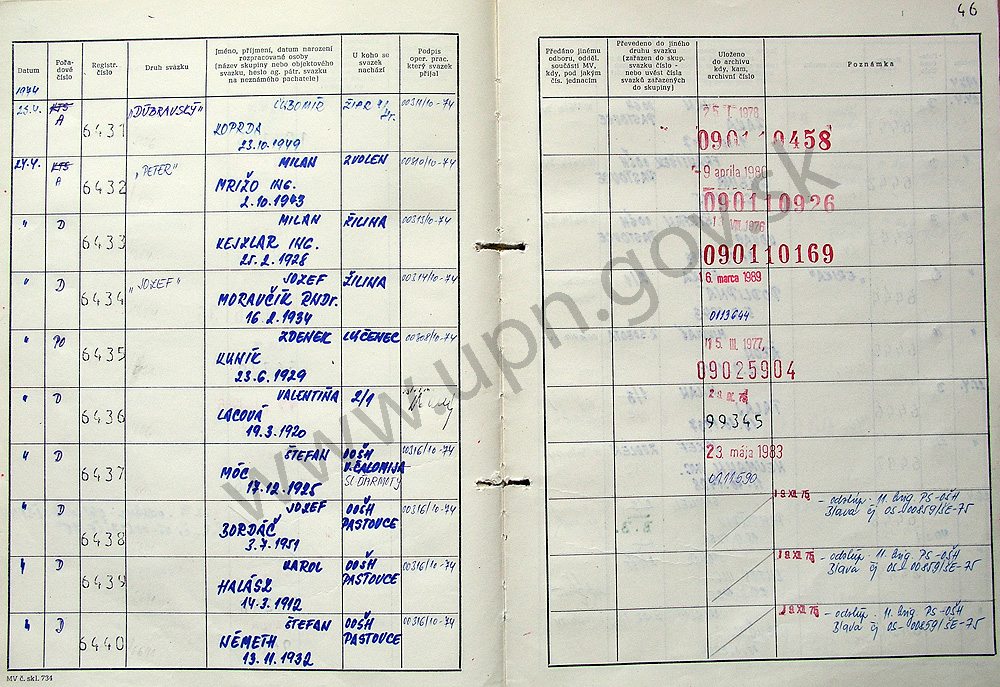 46
Datum
Pořa-
dové
číslo
Registr.
číslo
Druh svazku
Jméno, příjmení, datum narození
rozpracované osoby
(název skupiny nebo objektového
svazku, heslo ag. pátr. svazku
na neznámého pachatele)
U koho se
svazek
nachází
Podpis
oper. prac.
který svazek
přijal
Předáno jinému
odboru, odděl.
součásti MV,
kdy, pod jakým
čís. jednacím
Převedeno do jiného
druhu svazku
(zařazen do skup.
svazku číslo -
nebo uvést čísla
svazků zařazených
do skupiny)
Uloženo
do archivu
kdy, kam,
archivní číslo
Poznámka
1974
23.4. KTS A 6431 „DÚBRAVSKÝ" ĽUBOMÍR
KOPRDA
23.10.1949
00311/10-74
090110458
24.4. KTS A 6432 „PETER" MILAN ZVOLEN 00310/10-74
MRIŽO ING.
2.10.1943
-9 apríla 1980
090110926
" D 6433 MILAN ŽILINA 00313/10-74
KEJKLAR ING.
25.2.1928
VIII. 1976
090110169
" D 6434 „JOZEF" JOZEF ŽILINA 00314/10-74
MORAVČÍK RNDr.
16.2.1934
16. marca 1989
0113644
" PO 6435 ZDENEK LUČENEC 00308/10-74
KUNÍK
23.6.1929
15. III. 1977
09025904
" D 6436 VALENTÍNA 2/1
LACOVÁ
19.3.1920
99345
" D 6437 ŠTEFAN OOŠH 00316/10-74
MÓC V. ČALOMIJA
17.12.1925 SÍDARMOTY
23. mája 1983
0011590
" D 6438 JOZEF OOŠH 00316/10-74
BORDÁČ PASTOVCE
3.7.1951
19. XII. 75 - odstúp. 11. brig. PS-OŠH
Blava čj OS-00859/ŠE-75
" D 6439 KAROL OOŠH 00316/10-74
HALÁSZ PASTOVCE
14.3.1912
19. XII. 75 - odstúp. 11. brig. PS-OŠH
Blava čj OS-00859/ŠE-75
" D 6440 ŠTEFAN OOŠH 00316/10-74
NÉMETH PASTOVCE
13.11.1932
19. XII. 75 - odstúp. 11. brig. PS-OŠH
Blava čj OS-00859/ŠE-75
MV č. skl. 734
www.upn.gov.sk